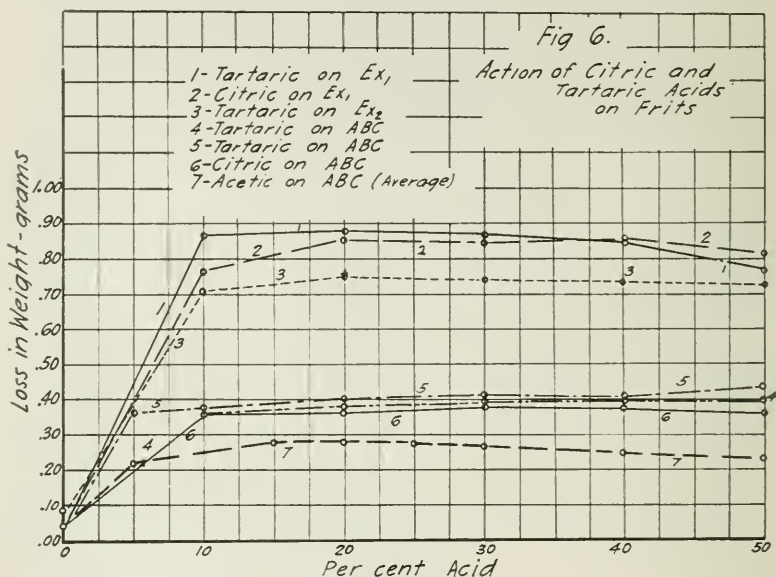 Fig 6.
Action of Citric and
Tartaric Acids
on Frits
1-Tartaric on Ex₁
2-Citric on Ex₁
3-Tartaric on Ex₂
4-Tartaric on ABC
5-Tartaric on ABC
6-Citric on ABC
7-Acetic on ABC (Average)
Loss in Weight-grams
1.00
.90
.80
.70
.60
.50
.40
.30
.20
.10
.00
0 10 20 30 40 50
Per cent Acid
1
2
1
2
3
3
1
1
3
5
5
5
4
6
6
6
4
7
7